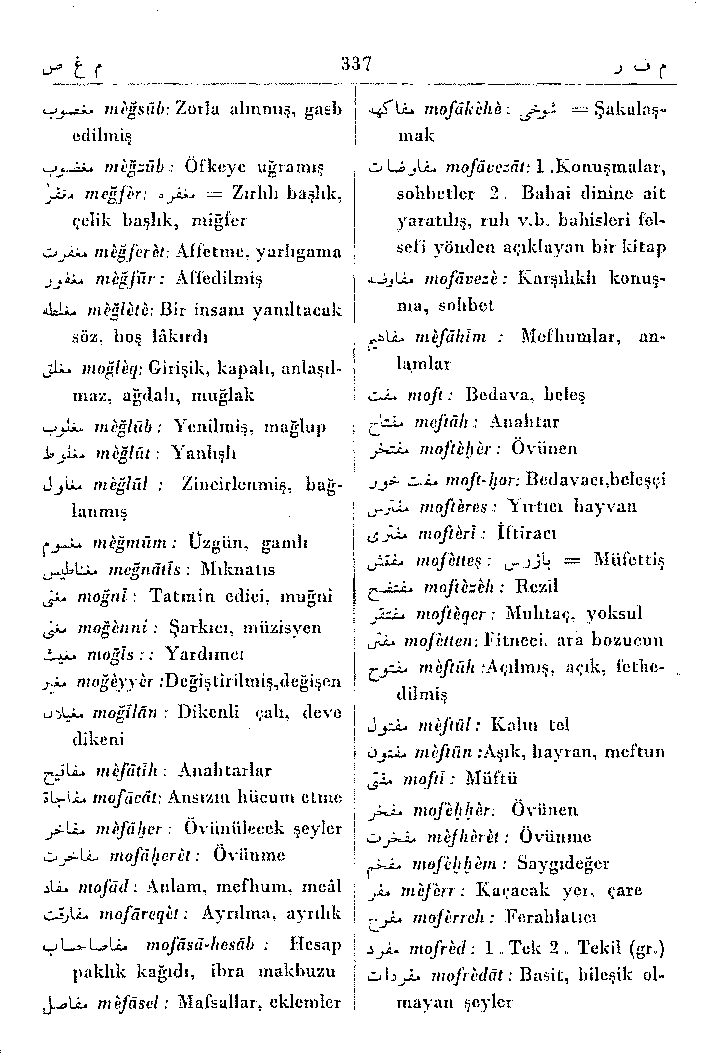 م غ ص
337
م ف ر
مغصوب mèğsūb: Zorla alınmış, gasb
edilmiş
مغضوب mèğzūb : Öfkeye uğramış
مغفر meğfèr: مغفره = Zırhlı başlık,
çelik başlık, miğfer
مغفرت mèğferèt: Affetme, yarlıgama
مغفور mèğfūr : Affedilmiş
مغلطه mèğlètè: Bir insanı yanıltacak
söz, boş lâkırdı
مغلق moğlèq: Girişik, kapalı, anlaşıl-
maz, ağdalı, muğlak
مغلوب mèğlūb : Yenilmiş, mağlup
مغلوط mèğlūt : Yanlışlı
مغلول mèğlūl : Zincirlenmiş, bağ-
lanmış
مغموم mèğmūm : Üzgün, gamlı
مغناطیس meğnātīs : Mıknatıs
مغنی moğnī : Tatmin edici, muğni
مغنی moğènni : Şarkıcı, müzisyen
مغیث moğīs : : Yardımcı
مغیر moğèyyèr :Değiştirilmiş,değişen
مغیلان moğīlān : Dikenli çalı, deve
dikeni
مفاتیح mèfātīh : Anahtarlar
مفاجاة mofācāt: Ansızın hücum etme
مفاخر mèfāḫer : Övünülecek şeyler
مفاخرت mofāḫerèt : Övünme
مفاد mofād : Anlam, mefhum, meâl
مفارقت mofāreqèt : Ayrılma, ayrılık
مفاصاحساب mofāsā-hesāb : Hesap
paklık kağıdı, ibra makbuzu
مفاصل mèfāsel : Mafsallar, eklemler
مفاکهه mofākèhè : شوخی = Şakalaş-
mak
مفاوضات mofāvezāt: 1.Konuşmalar,
sohbetler 2. Bahai dinine ait
yaratılış, ruh v.b. bahisleri fel-
sefi yönden açıklayan bir kitap
مفاوضه mofāvezè : Karşılıklı konuş-
ma, sohbet
مفاهیم mèfāhīm : Mefhumlar, an-
lamlar
مفت moft : Bedava, beleş
مفتاح meftāh : Anahtar
مفتخر moftèḫèr : Övünen
مفت خور moft-ḫor: Bedavacı,beleşçi
مفترس moftères : Yırtıcı hayvan
مفتری moftèrī : İftiracı
مفتش mofètteş : بازرس = Müfettiş
مفتضح moftèzèh : Rezil
مفتقر moftèqer : Muhtaç, yoksul
مفتن mofètten: Fitneci, ara bozucun
مفتوح mèftūh :Açılmış, açık, fethe-
dilmiş
مفتول mèftūl : Kalın tel
مفتون mèftūn :Aşık, hayran, meftun
مفتی moftī : Müftü
مفخر mofèḫḫèr: Övünen
مفخرت mèfḫerèt : Övünme
مفخم mofèḫḫèm : Saygıdeğer
مفر mèfèrr : Kaçacak yer, çare
مفرح mofèrreh : Ferahlatıcı
مفرد mofrèd : 1. Tek 2. Tekil (gr.)
مفردات mofrèdāt : Basit, bileşik ol-
mayan şeyler